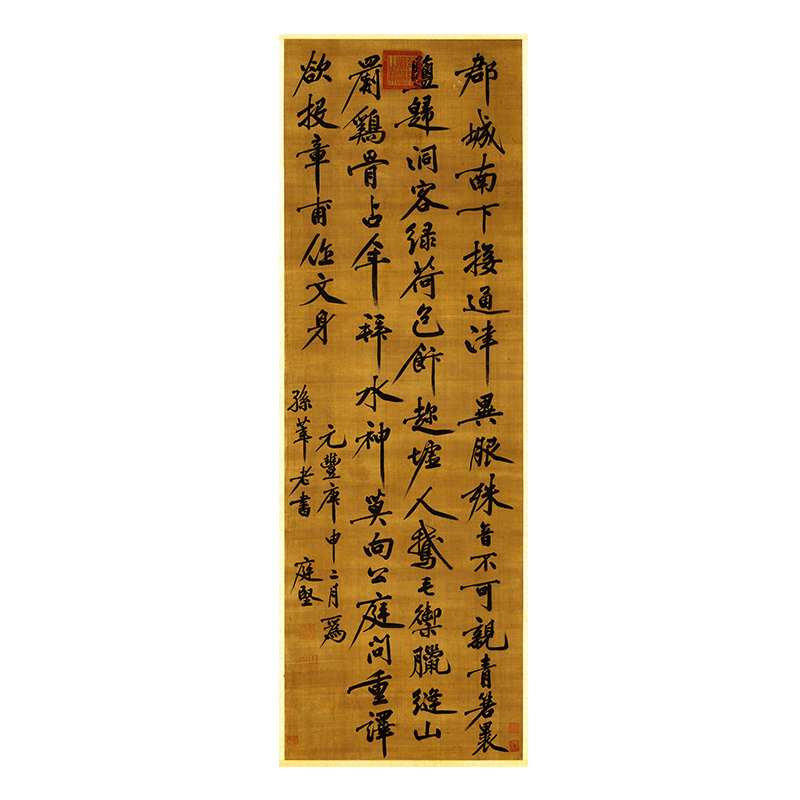 郡城南下接通津異服殊音不可親青箬裹
鹽歸洞客緑荷包飯趂墟人鵝毛禦臘縫山
罽鷄骨占年拜水神莫向公庭問重譯
欲投章甫作文身
元豐庚申二月爲
孫莘老書 庭堅